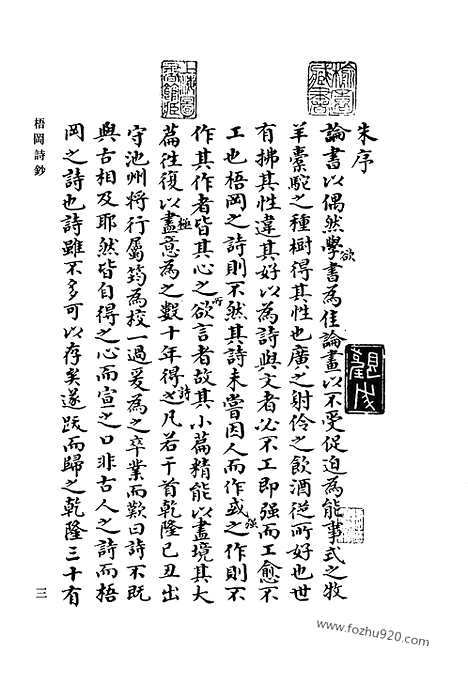 朱序
論書以偶然欲學書為佳論畫以不受促迫為能事式之牧
羊橐駝之種樹得其性也廣之射伶之飲酒從所好也世
有拂其性違其好以為詩與文者必不工即强而工愈不
工也梧岡之詩則不然其詩未嘗因人而作或强之作則不
作其作者皆其心之所欲言者故其小篇精能以盡境其大
篇往復以極盡意為之數十年得之詩凡若干首乾隆己丑出
守池州將行屬筠為校一過爰為之卒業而歎曰詩不既
與古相及耶然皆自得之心而宣之口非古人之詩而梧
岡之詩也詩雖不多可以存矣遂跋而歸之乾隆三十有
梧岡詩鈔
三
www.fozhu920.com